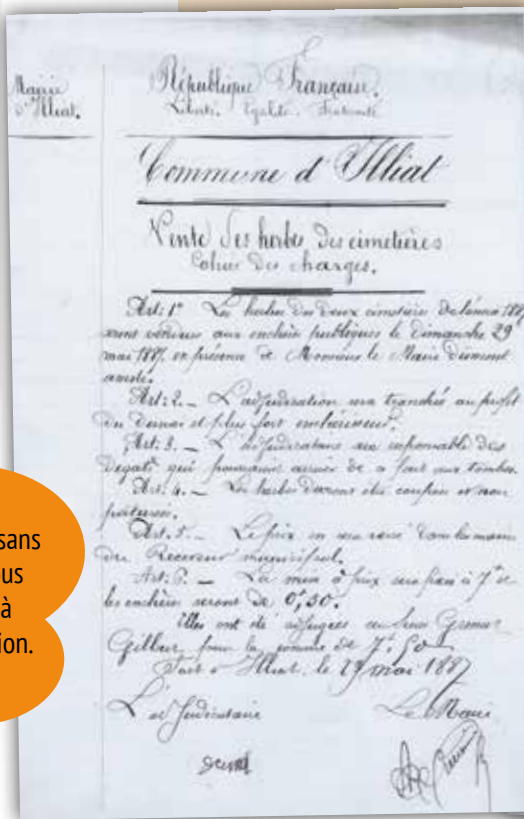 Mairie
d'Illiat.
République Française.
Liberté. Egalité. Fraternité
Commune d'Illiat
Vente des herbes des cimetières
Cahier des charges.
Art: 1er Les herbes des deux cimetières de l'année 1887
seront vendues aux enchères publiques le dimanche 29
mai 1887 en présence de Monsieur le Maire
Art: 2. _ L'adjudication sera tranchée au profit
du dernier et plus fort enchérisseur.
Art: 3. _ L'adjudicataire sera responsable des
dégats qui pourraient arriver de ce fait aux tombes.
Art: 4. _ Les herbes devront être coupées et non
pâturées.
Art: 5. _ Le prix en sera versé dans les mains
du Receveur municipal.
Art: 6. _ La mise à prix sera fixée à 7f et
les enchères seront de 0f,50.
Elles ont été adjugées au Sieur
pour la somme de 7f 50
Fait à Illiat, le 29 mai 1887
L'adjudicataire
Le Maire
sans
ous
à
ion.